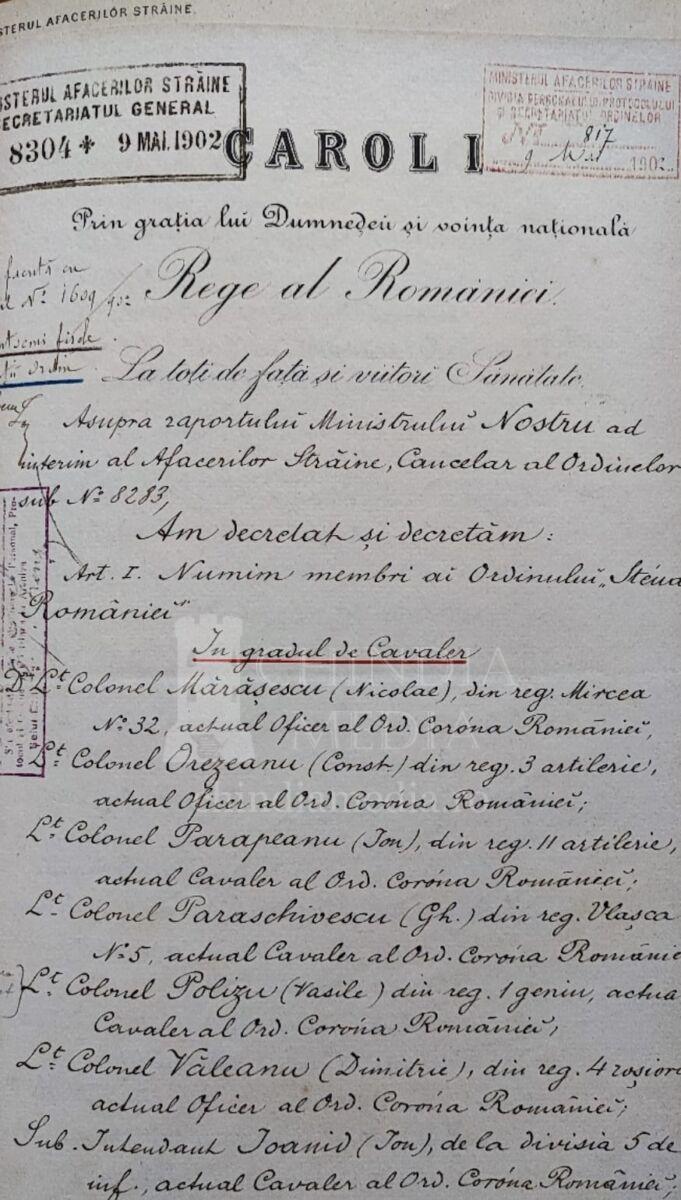 STERUL AFACERILOR STRĂINE.
NISTERUL AFACERILOR STRĂINE
SECRETARIATUL GENERAL
8304 * 9 MAI. 1902
MINISTERUL AFACERILOR STRĂINE
DIVIZIA PERSONALULUI, PROTOCOLULUI
ȘI SECRETARIATUL ORDINELOR
No. 817
9 Mai 1902
CAROL I
Prin grația lui Dumnedeu și voința națională
No. 1609/902
Rege al României.
La toți de față și viitori Sănătate.
Asupra raportului Ministrului Nostru ad
interim al Afacerilor Străine, Cancelar al Ordinelor
sub No. 8283,
Am decretat și decretăm:
Art. I. Numim membri ai Ordinului „Steua
României”
In gradul de Cavaler
Lt. Colonel Mărășescu (Nicolae), din reg. Mircea
No. 32, actual Oficer al Ord. Coróna României,
Lt. Colonel Orezeanu (Const.) din reg. 3 artilerie,
actual Oficer al Ord. Corona României;
Lt. Colonel Parapeanu (Ion), din reg. 11 artilerie,
actual Cavaler al Ord. Coróna României;
Lt. Colonel Paraschivescu (Gh.) din reg. Vlașca
No. 5, actual Cavaler al Ord. Coróna Românie
Lt. Colonel Polizu (Vasile) din reg. 1 geniu, actua
Cavaler al Ord. Coróna României;
Lt. Colonel Văleanu (Dimitrie), din reg. 4 roșiori
actual Oficer al Ord. Coróna României;
Sub. Intendant Ioanid (Ion), de la divisia 5 de
inf., actual Cavaler al Ord. Coróna României;
CHINDIA
MEDIA
chindiamedia